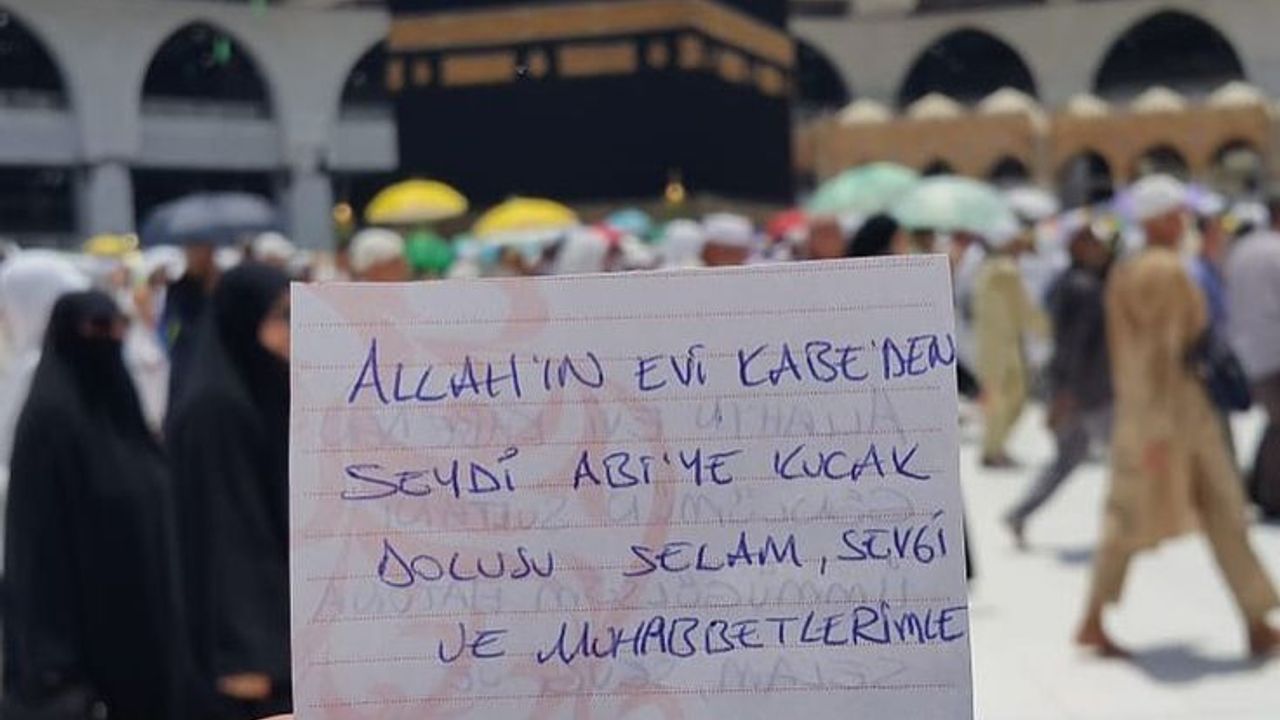 ALLAH'IN EVİ KABE'DEN
SEYDİ ABİ'YE KUCAK
DOLUSU SELAM, SEVGİ
VE MUHABBETLERİMLE